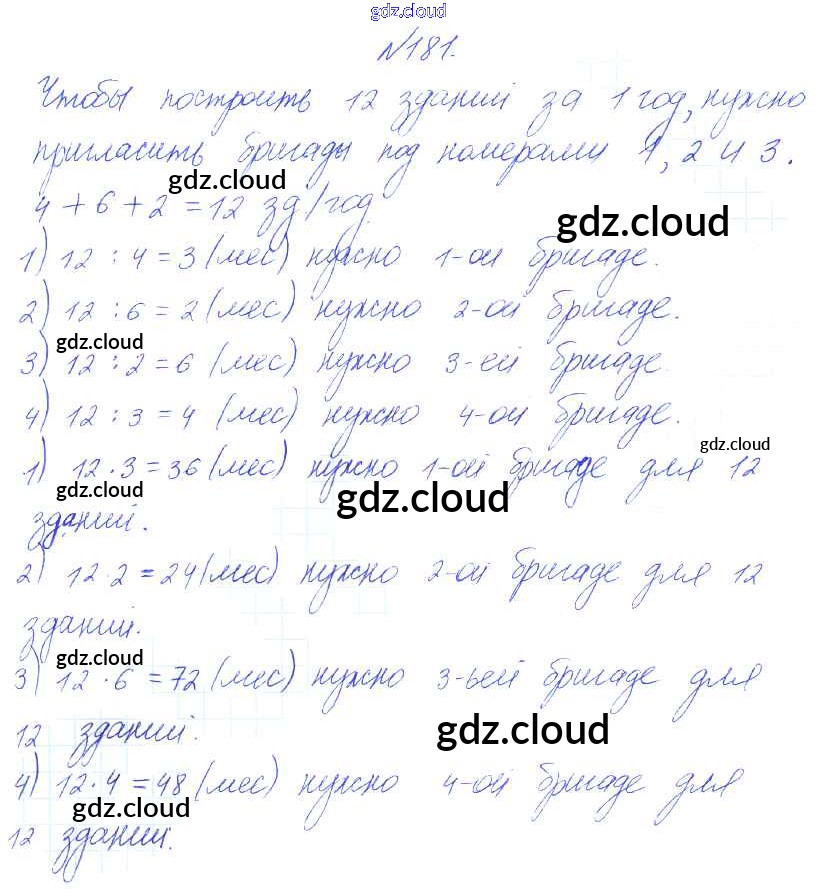 gdz.cloud
№181.
Чтобы построить 12 зданий за 1 год, нужно
пригласить бригады под номерами 1, 2 и 3.
gdz.cloud
4 + 6 + 2 = 12 зд/год.
gdz.cloud
1) 12 : 4 = 3 (мес) нужно 1-ой бригаде.
2) 12 : 6 = 2 (мес) нужно 2-ой бригаде.
gdz.cloud
3) 12 : 2 = 6 (мес) нужно 3-ей бригаде.
4) 12 : 3 = 4 (мес) нужно 4-ой бригаде.
gdz.cloud
1) 12 · 3 = 36 (мес) нужно 1-ой бригаде для 12
gdz.cloud
gdz.cloud
зданий.
2) 12 · 2 = 24 (мес) нужно 2-ой бригаде для 12
зданий.
gdz.cloud
3) 12 · 6 = 72 (мес) нужно 3-ьей бригаде для
12 зданий.
gdz.cloud
4) 12 · 4 = 48 (мес) нужно 4-ой бригаде для
gdz.cloud
12 зданий.